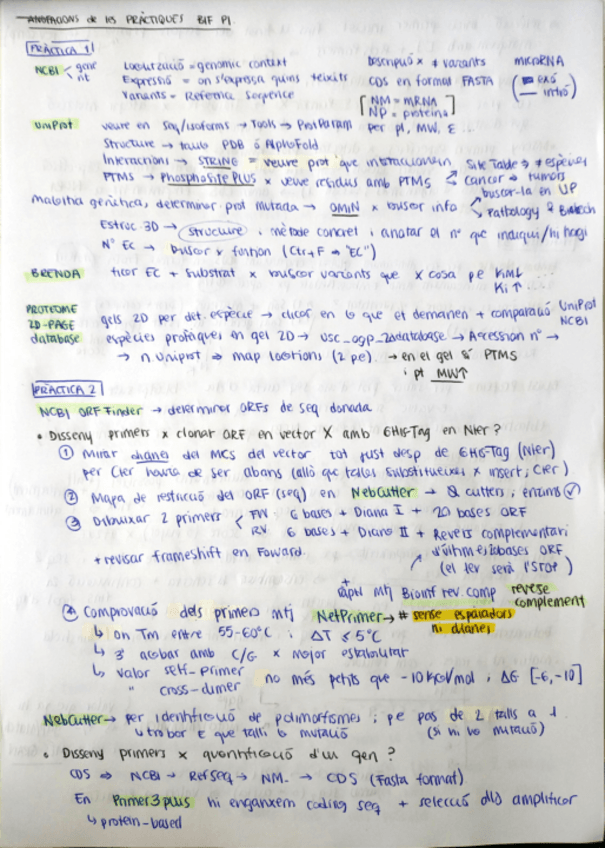 ANOTACIONS de les PRÀCTIQUES BIF P1.
PRÀCTICA 1
NCBI < gene nt
Localització = genomic context
Expressió = on s'expressa quins teixits
Variants = Reference Sequence
Descripció x ≠ variants
CDS en format FASTA
[NM = mRNA
NP = proteïna]
microRNA
(exó
intró)
UniProt veure en seq/isoforms → Tools → ProtParam per pI, MW, ε...
Structure → taula PDB o AlphaFold
Interactions → STRING = veure prot que interaccionen
PTMS → PhosphoSite PLUS x veure residus amb PTMS
Site Table → ≠ espècies
cancer → tumors
malaltia genètica, determinar prot mutada → OMIN x buscar info
buscar-la en UP
Pathology & Biotech
Estruc. 3D → structure i mètode concret i anotar el nº que indiqui/hi hagi
Nº EC → buscar x funtion (Ctr+F → "EC")
BRENDA ficar EC + substrat x buscar variants que x cosa pe KM↓... Ki↑...
PROTEOME
2D-PAGE
database
gels 2D per det. espècie → clicar en lo que et demanen + comparació UniProt NCBI
espècies protèiques en gel 2D → usc_ogp_2ddatabase → Accession nº →
→ n Uniprot → map locations (2 pe). → en el gel & PTMS
i pt MW↑
PRÀCTICA 2
NCBI ORF Finder → determinar ORFs de seq donada
• Disseny primers x clonar ORF en vector X amb 6HIS-Tag en Nter?
① Mirar diana del MCS del vector tot just desp de 6HIS-Tag (Nter)
per Cter haurà de ser abans (allò que talles substitueixes x insert, Cter)
② Mapa de restricció del ORF (seq) en NebCutter → 0 cutters, enzims ✓
③ Dibuixar 2 primers < FW 6 bases + Diana I + 20 bases ORF
RV 6 bases + Diana II + Revers complementari
d'últimes 20 bases ORF
(el 1er serà l'STOP)
+ revisar frameshift en Foward.
mtj Bioinf rev. comp reverse complement
④ Comprovació dels primers mtj NetPrimer → # sense espaiadors
ni dianes
↳ on Tm entre 55-60ºC i ΔT ≤ 5ºC
↳ 3' acabar amb C/G x major estabilitat
↳ valor self-primer
" cross-dimer
no més petits que -10 kcal/mol, ΔG [-6,-10]
NebCutter → per identificació de polimorfismes i pe pas de 2 talls a 1
trobar E que talli la mutació (si hi ha mutació)
• Disseny primers x quantificació d'un gen?
CDS ⇒ NCBI → RefSeq → NM. → CDS (Fasta format)
En Primer3plus hi enganxem coding seq + selecció dls amplificar
↳ protein-based